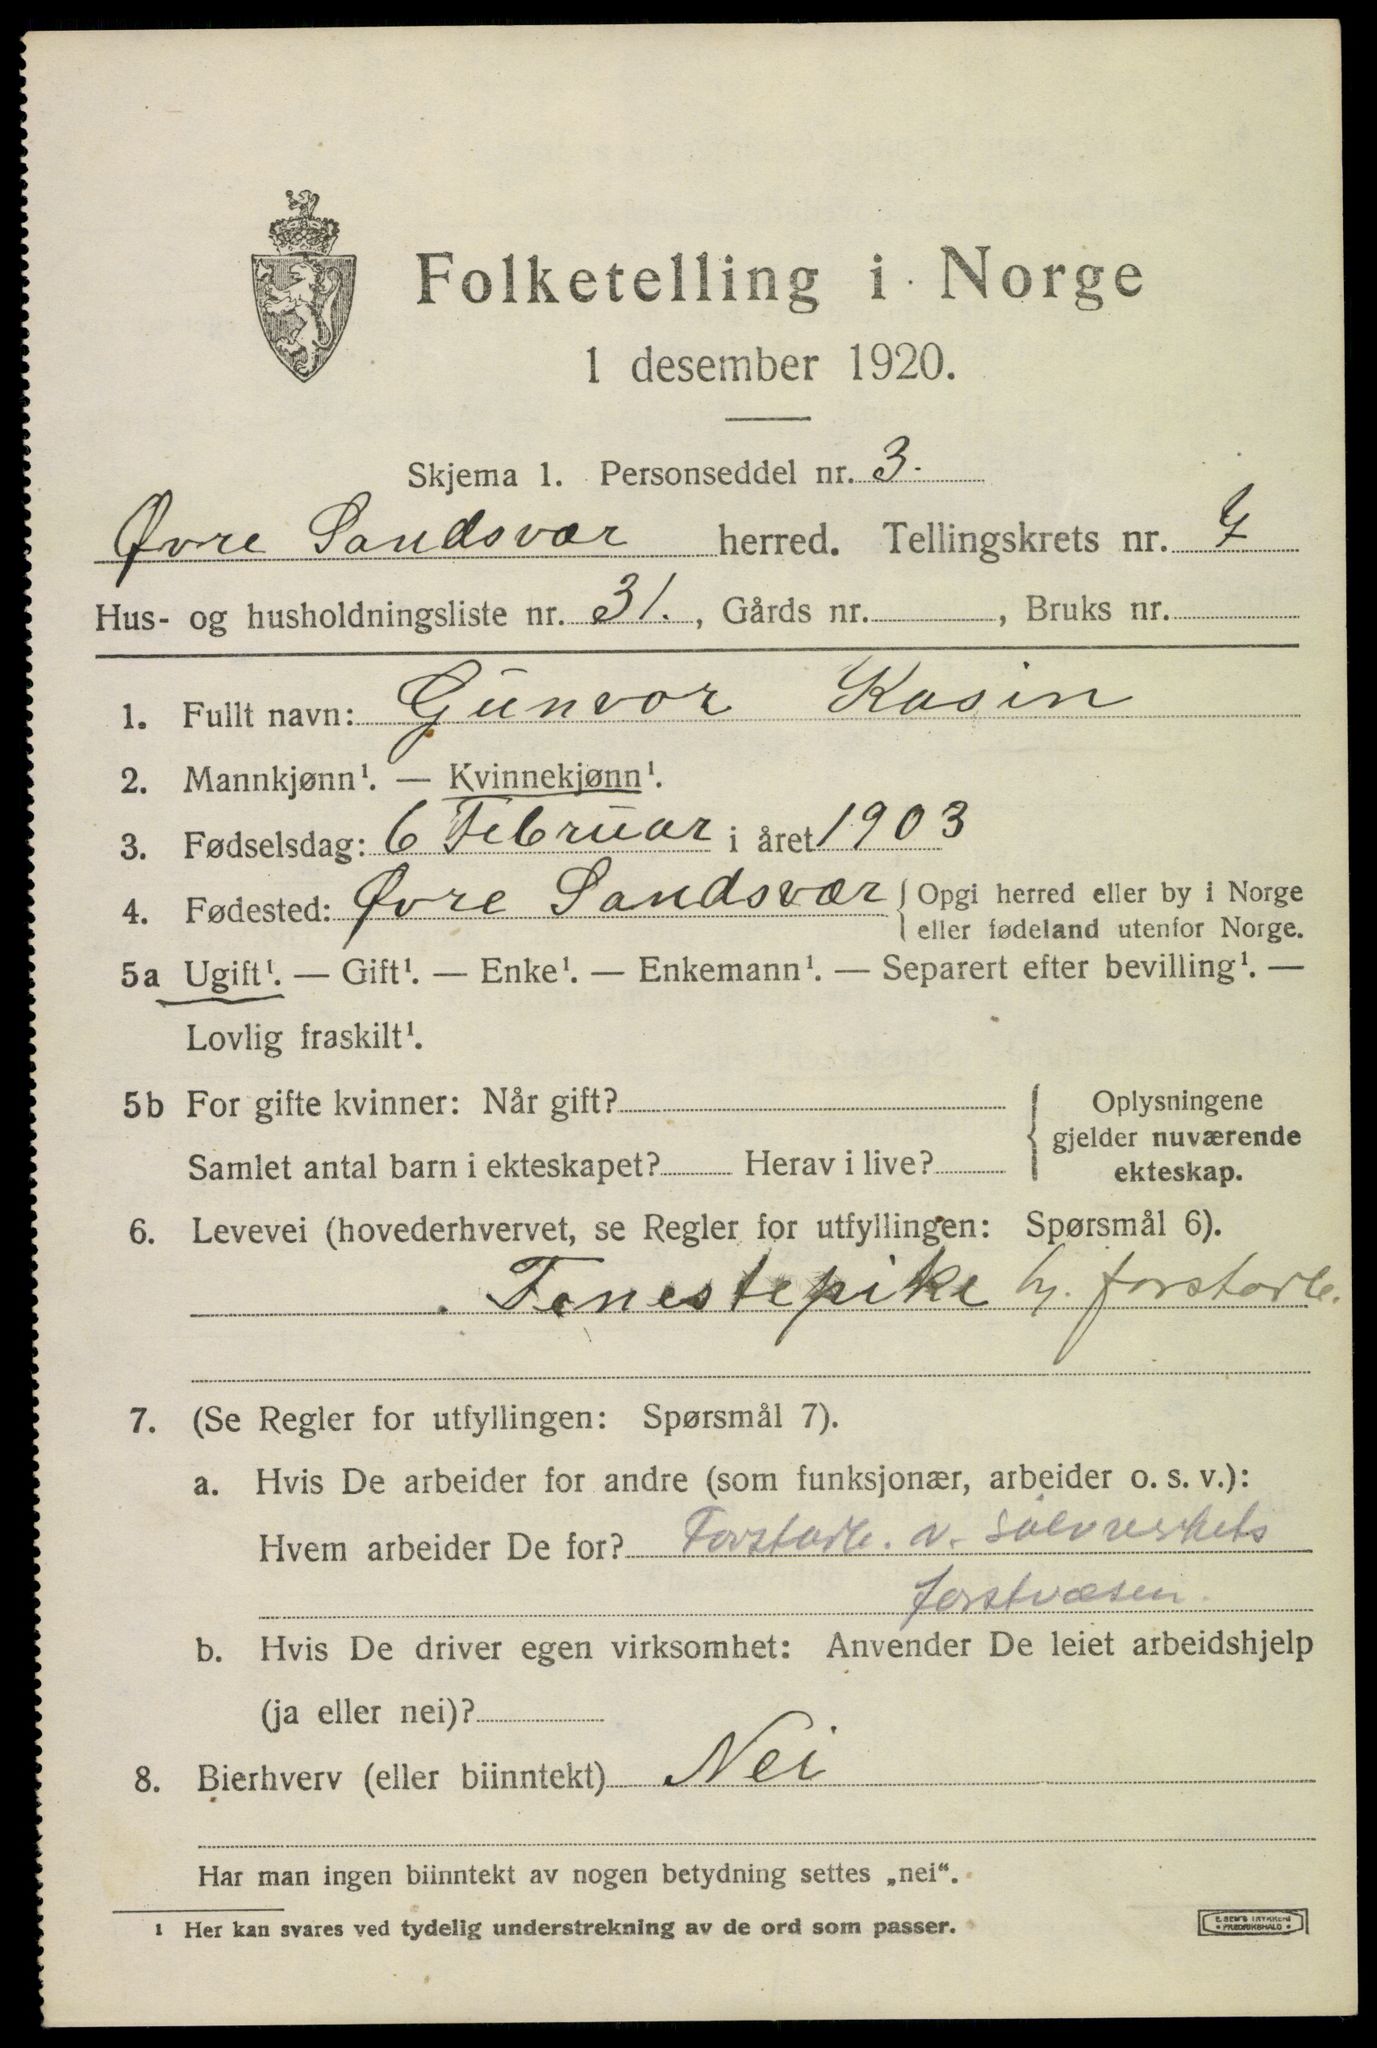 Folketelling i Norge
1 desember 1920.
Skjema 1. Personseddel nr. 3.
Øvre Sandsvær herred. Tellingskrets nr. 7
Hus- og husholdningsliste nr. 31., Gårds nr. , Bruks nr.
1. Fullt navn: Gunvor Kasin
2. Mannkjønn¹. — Kvinnekjønn¹.
3. Fødselsdag: 6 Februar i året 1903
4. Fødested: Øvre Sandsvær { Opgi herred eller by i Norge
eller fødeland utenfor Norge.
5a Ugift¹. — Gift¹. — Enke¹. — Enkemann¹. — Separert efter bevilling¹. —
Lovlig fraskilt¹.
5b For gifte kvinner: Når gift?
Samlet antal barn i ekteskapet? Herav i live?
Oplysningene
gjelder nuværende
ekteskap.
6. Levevei (hovederhvervet, se Regler for utfyllingen: Spørsmål 6).
Tenestepike hj. forstarb.
7. (Se Regler for utfyllingen: Spørsmål 7).
a. Hvis De arbeider for andre (som funksjonær, arbeider o. s. v.):
Hvem arbeider De for? Forstarb. v. Sølvverkets
forstvæsen.
b. Hvis De driver egen virksomhet: Anvender De leiet arbeidshjelp
(ja eller nei)?
8. Bierhverv (eller biinntekt) Nei
Har man ingen biinntekt av nogen betydning settes „nei“.
¹ Her kan svares ved tydelig understrekning av de ord som passer.
E. SEM'S TRYKKERI
• FREDRIKSHALD •